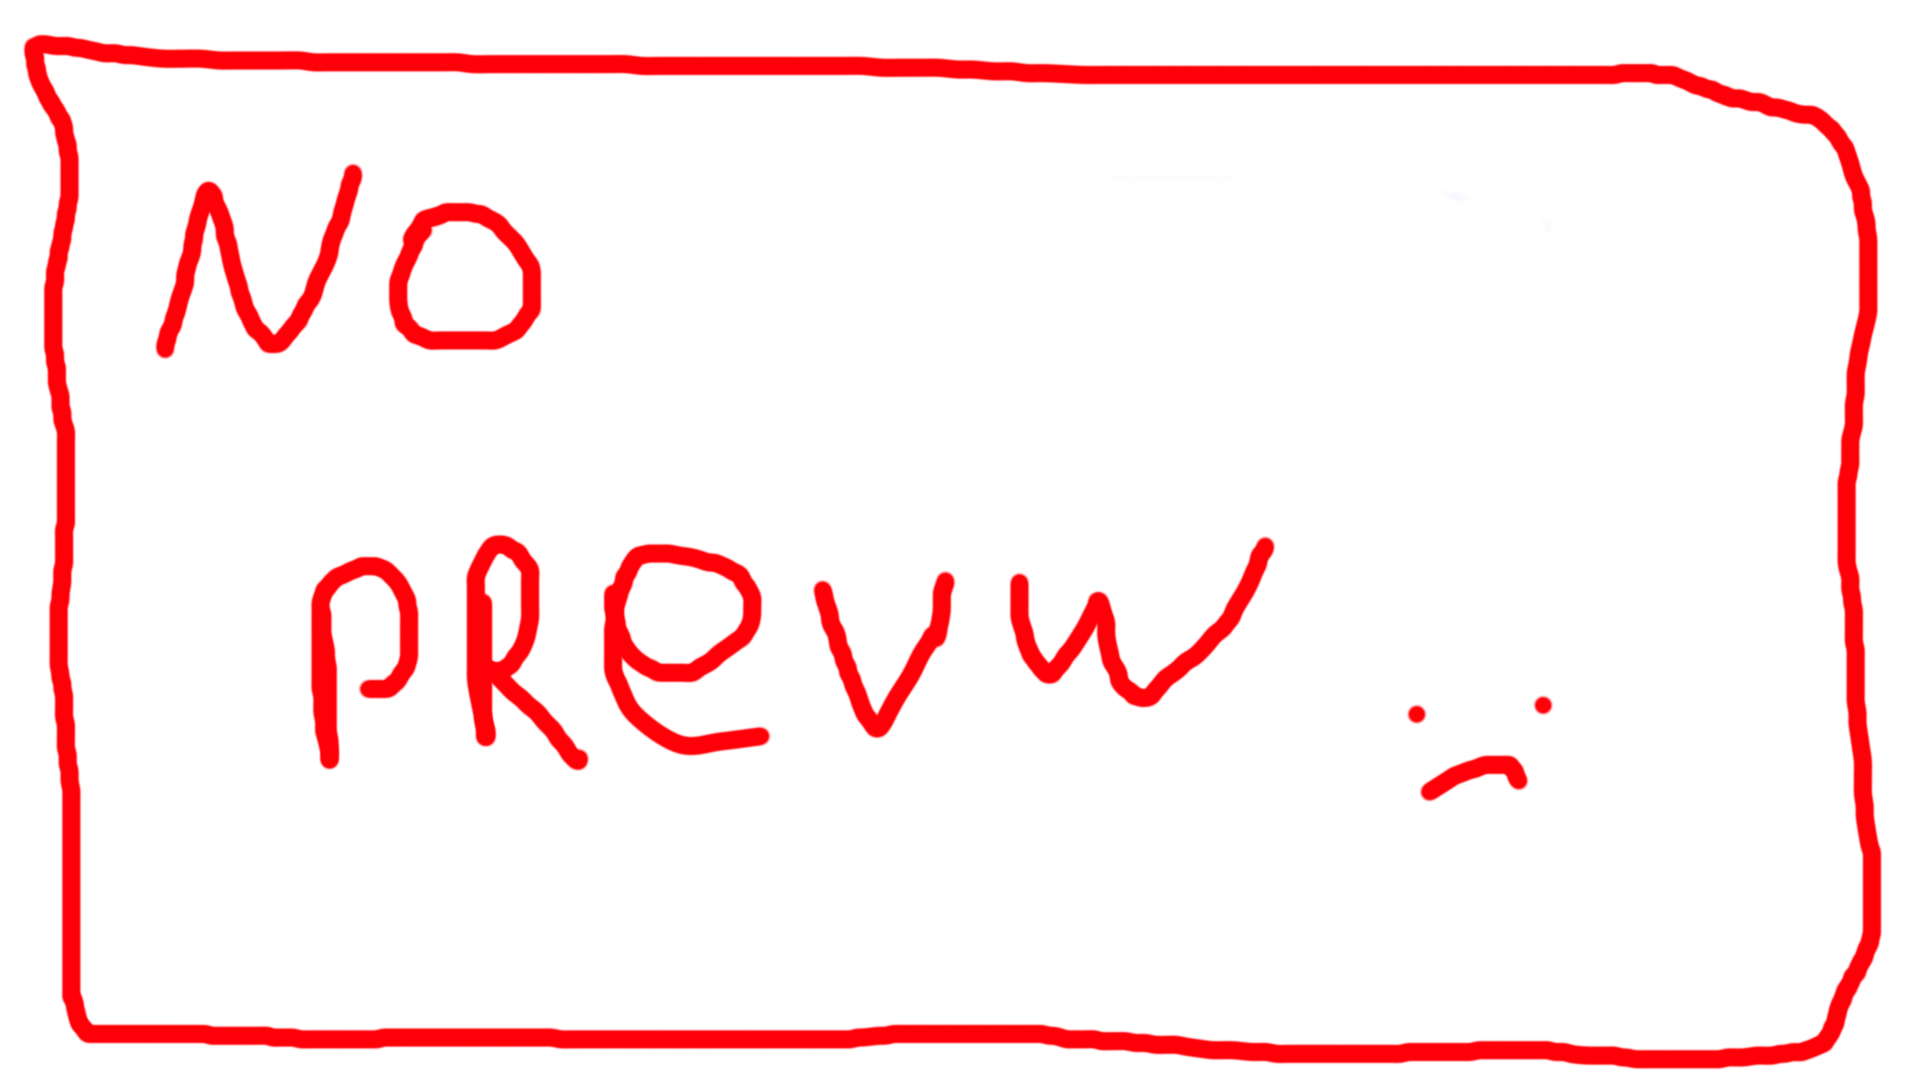 NO
PRevw